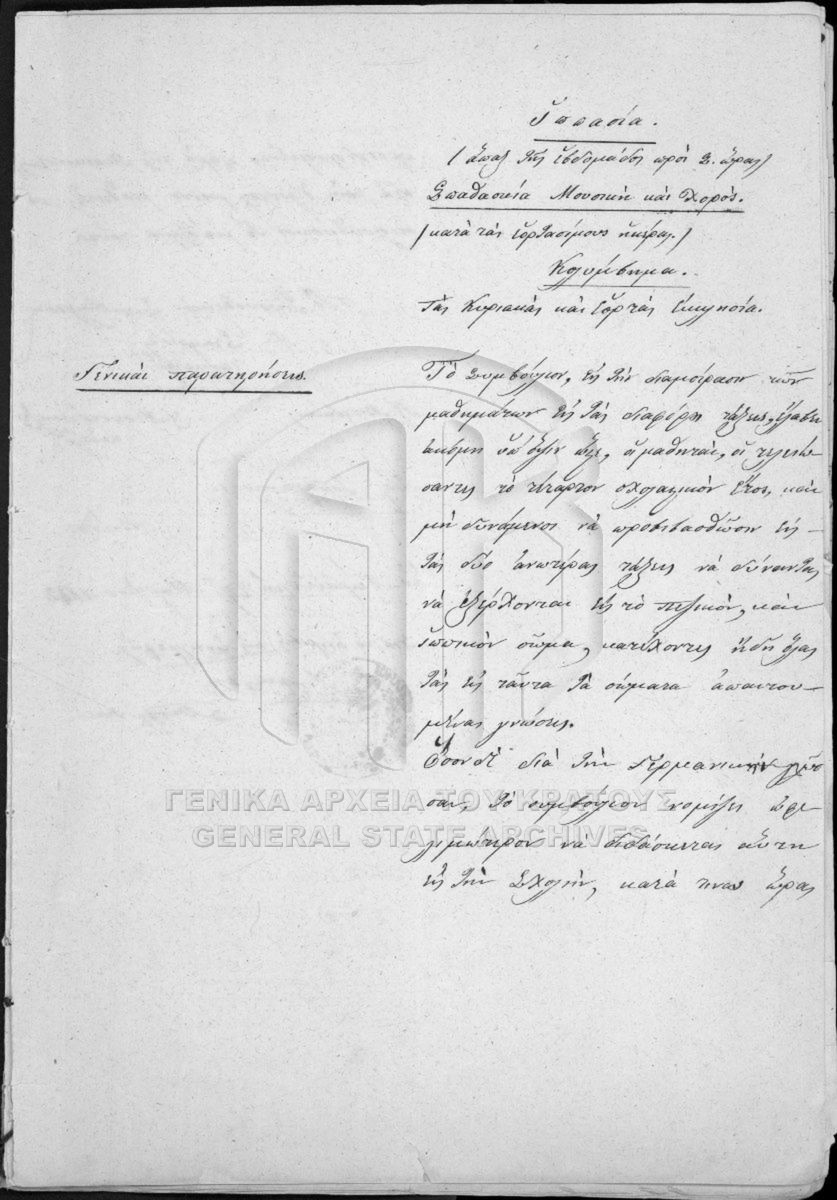 Ἱππασία.
(ἅπαξ τῆς ἑβδομάδος πρὸς 2. ὥρας)
Σπαθασκία Μουσικὴ καὶ Χορός.
(κατὰ τὰς ἑορτασίμους ἡμέρας.)
Κολύμβημα.
Τὰς Κυριακὰς καὶ ἑορτὰς ἐκκλησία.
Γενικαὶ παρατηρήσεις.
Τὸ Συμβούλιον, εἰς τὴν διαμοίρασιν τῶν
μαθημάτων εἰς τὰς διαφόρους τάξεις, ἔλαβε
ἀκόμη ὑπ' ὄψιν ὅτι, οἱ μαθηταὶ, οἱ τελειώ
σαντες τὸ τέταρτον σχολαστικὸν ἔτος, καὶ
μὴ δυνάμενοι νὰ προβιβασθῶσιν εἰς
τὰς δύο ἀνωτέρας τάξεις νὰ δύνανται
νὰ ἐξέρχονται εἰς τὸ πεζικὸν, καὶ
ἱππικὸν σῶμα, κατέχοντες ἤδη ὅλας
τὰς εἰς ταῦτα τὰ σώματα ἀπαιτου-
μένας γνώσεις.
Ὅσον δὲ διὰ τὴν Γερμανικὴν γλῶσ
σαν, τὸ συμβούλιον νομίζει ὠφε
λιμώτερον νὰ διδάσκεται αὕτη
εἰς τὴν Σχολὴν, κατά τινας ὥρας
ΓΕΝΙΚΑ ΑΡΧΕΙΑ ΤΟΥ ΚΡΑΤΟΥΣ
GENERAL STATE ARCHIVES